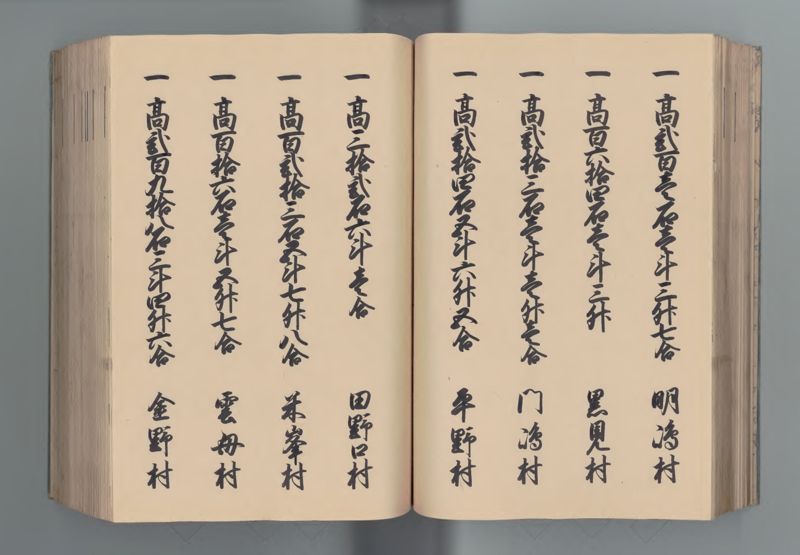 一 高弐百壱石壱斗三升七合 明嶋村
一 高百六拾四石壱斗三升 黒見村
一 高弐拾三石壱斗壱升壱合 門嶋村
一 高弐拾四石五斗六升五合 平野村
一 高三拾弐石六斗壱合 田野口村
一 高百弐拾三石五斗七升八合 米峯村
一 高百拾六石壱斗五升七合 雲母村
一 高弐百九拾八石三斗四升六合 金野村